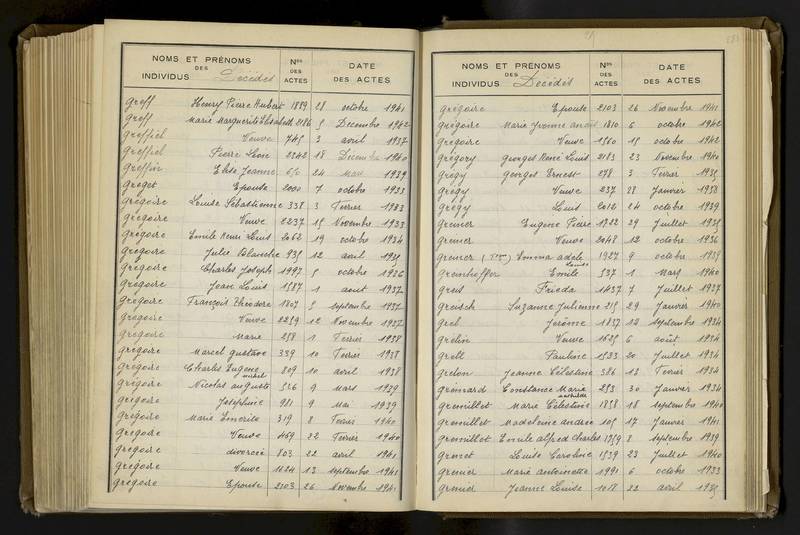 NOMS ET PRÉNOMS
DES
INDIVIDUS Décédés
Nos
DES
ACTES
DATE
DES ACTES
Greff Henry Pierre Hubert 1889 28 octobre 1941
Greff Marie Marguerite Elisabeth 2186 5 Decembre 1942
Greffiel Veuve 745 3 avril 1937
Greffiel Pierre Léon 2242 18 Decembre 1940
Elise Jeanne 24 Mars 1939
Greget Epouse 2000 7 octobre 1933
Grégoire Louise Sébastienne 338 3 Fevrier 1933
Grégoire Veuve 2237 15 Novembre 1933
Grégoire Emile Henri Louis 2062 19 octobre 1934
Grégoire Julie Blanche 935 12 avril 1935
Grégoire Charles Joseph 1997 5 octobre 1936
Grégoire Jean Louis 1587 1 aout 1937
Grégoire François Théodore 1807 5 septembre 1937
Grégoire Veuve 2259 12 Novembre 1937
Grégoire Marie 258 1 Fevrier 1938
Grégoire Marcel Gustave 339 10 Fevrier 1938
Grégoire Charles Eugène Michel 809 10 avril 1938
Grégoire Nicolas auguste 526 9 Mars 1939
Grégoire Joséphine 981 9 Mai 1939
Grégoire Marie 319 8 Fevrier 1940
Grégoire Veuve 469 22 Fevrier 1940
Grégoire divorcée 803 22 avril 1941
Grégoire Veuve 1624 13 septembre 1941
Grégoire Epouse 2103 26 Novembre 1941
NOMS ET PRÉNOMS
DES
INDIVIDUS Décédés
Nos
DES
ACTES
DATE
DES ACTES
Grégoire Epouse 2103 26 Novembre 1941
Grégoire Marie Yvonne 1810 6 octobre 1942
Grégoire Veuve 1860 15 octobre 1942
Grégory Georges René Louis 2183 23 Novembre 1940
Grégy Georges Ernest 278 3 Fevrier 1935
Grégy Veuve 237 28 Janvier 1938
Grégy Louis 2012 24 octobre 1939
Greiner Eugene Pierre 1922 29 Juillet 1935
Greiner Veuve 2048 12 octobre 1936
Greiner Emma adèle Louise 1927 9 octobre 1939
Greinhoffer Emile 537 1 Mars 1940
Greis Frieda 1437 7 Juillet 1937
Greisch Suzanne Julienne 215 29 Janvier 1940
Grel Jérôme 1837 12 septembre 1934
Grelin Veuve 1625 6 août 1934
Grell Pauline 1523 20 Juillet 1934
Grelon Jeanne Célestine 386 13 Fevrier 1934
Grémard Constance Marie Mathilde 253 30 Janvier 1934
Gremillet Marie Célestine 1858 18 septembre 1940
Gremillet Madeleine Andrée 105 17 Janvier 1941
Gremillot Emile alfred Charles 1759 8 septembre 1939
Grenet Louise Caroline 1539 23 Juillet 1940
Grenier Marie antoinette 1991 6 octobre 1933
Grenier Jeanne Louise 1018 22 avril 1935